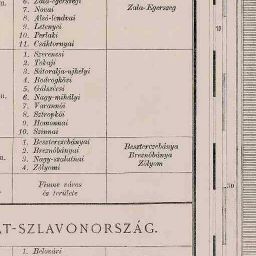 6. Zala-egerszegi
7. Novai
8. Alsó-lendvai
9. Letenyei
10. Perlaki
11. Csáktornyai
Zala-Egerszeg
1. Szerencsi
2. Tokaji
3. Sátoralja-ujhelyi
4. Bodrogközi
5. Gálszécsi
6. Nagy-mihályi
7. Varannói
8. Sztropkói
9. Homonnai
10. Szinnai
1. Beszterczebányai
2. Breznóbányai
3. Nagy-szalatnai
4. Zólyomi
Beszterczebánya
Breznóbánya
Zólyom
Fiume város
és területe
T-SZLAVONORSZÁG.
1. Belovári
50